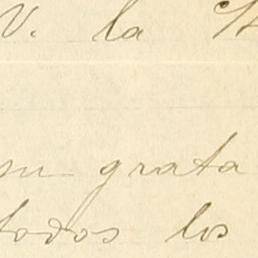 V. la
su grata
todos los